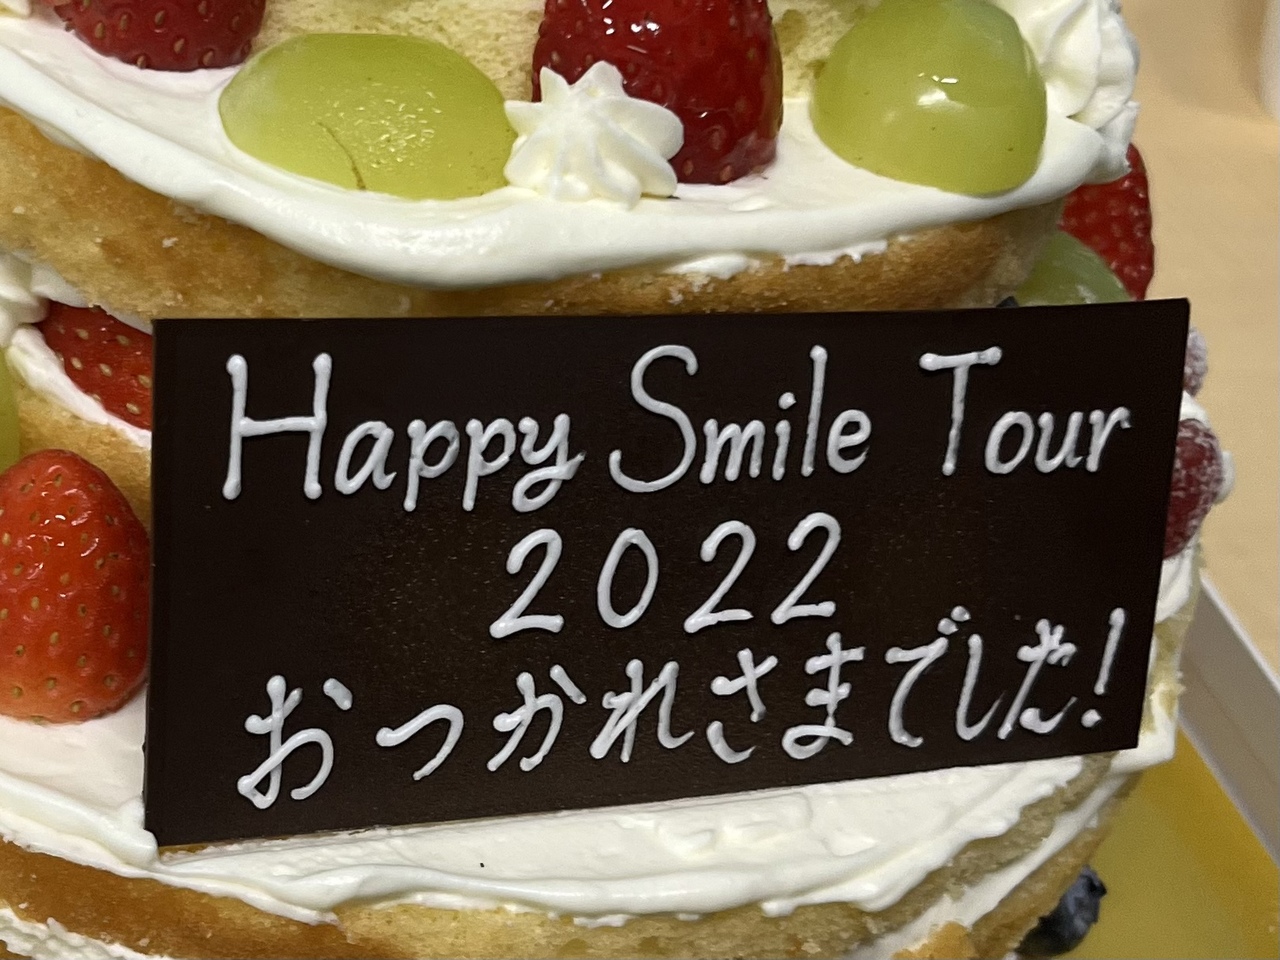 Happy Smile Tour
2022
おつかれさまでした!